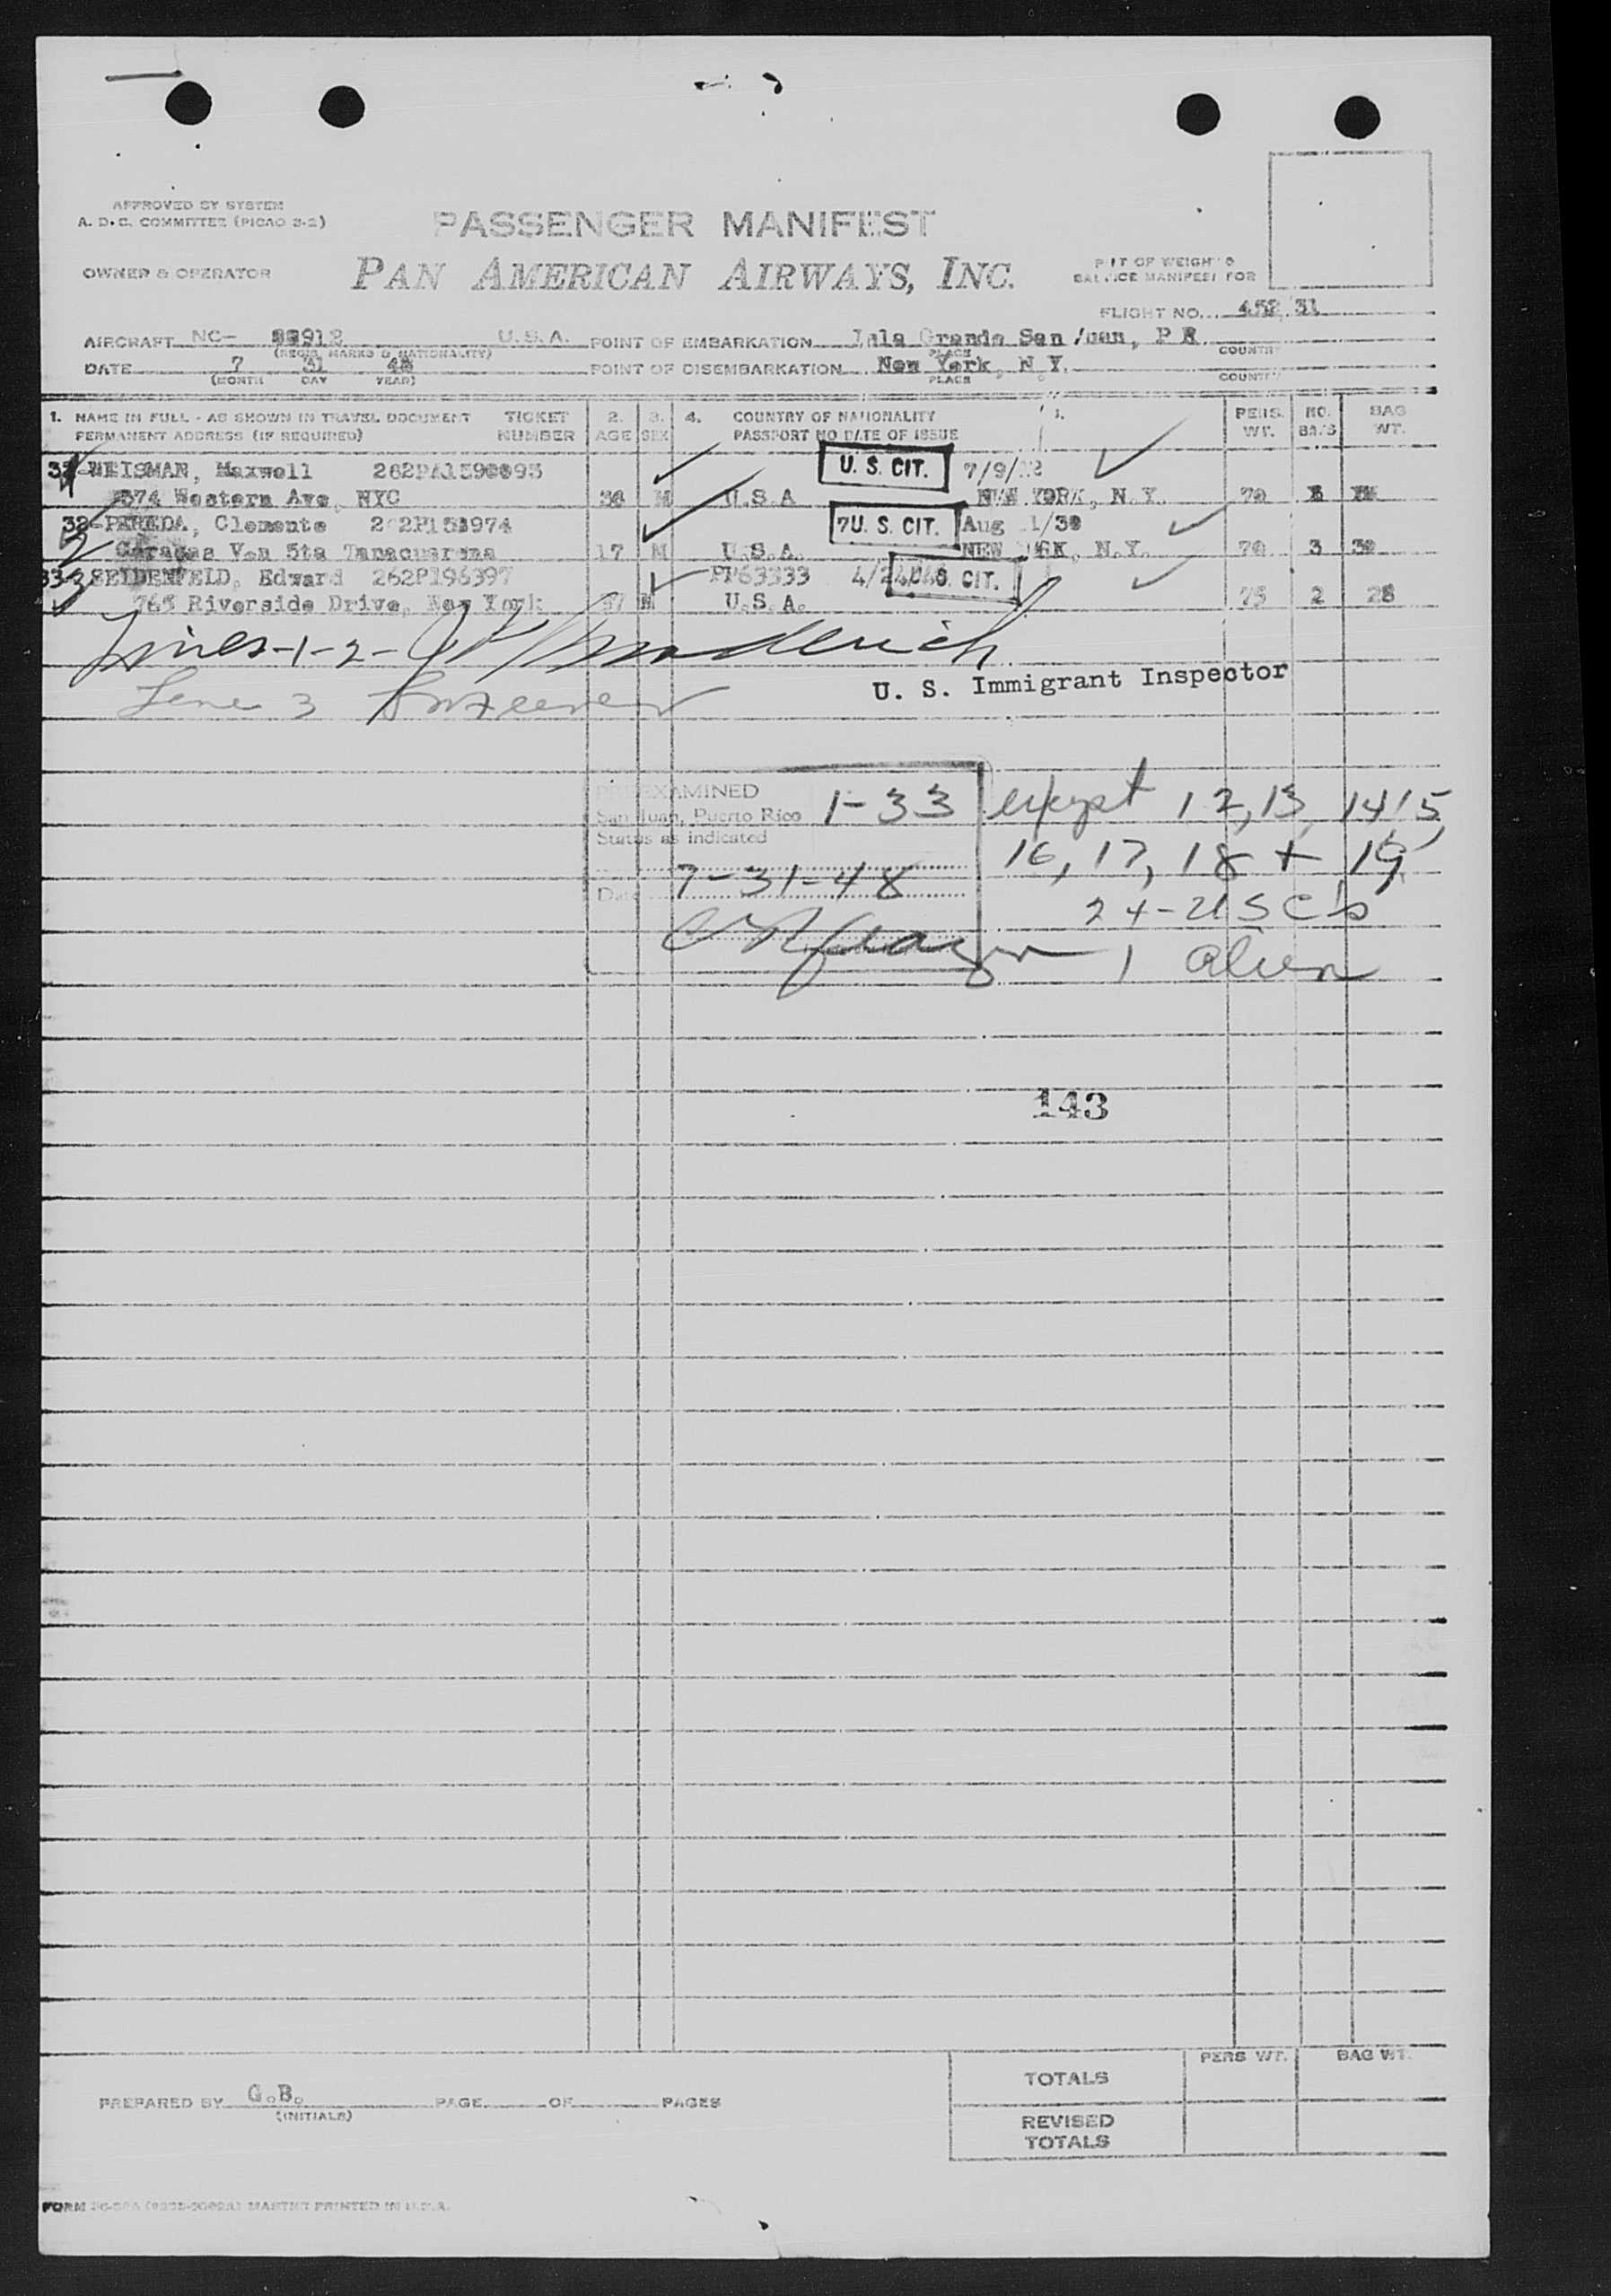 APPROVED BY SYSTEM
A. D. C. COMMITTEE (PICAO 3-2)
PASSENGER MANIFEST
OWNER & OPERATOR
PAN AMERICAN AIRWAYS, INC.
WEIGHT &
BALANCE MANIFEST FOR
FLIGHT NO. 31
AIRCRAFT NC- U. S. A.
(REGIS. MARKS & NATIONALITY)
POINT OF EMBARKATION Grande San Juan, P R
PLACE COUNTRY
DATE 7 31 48
(MONTH DAY YEAR)
POINT OF DISEMBARKATION New York, N Y.
PLACE COUNTRY
1. NAME IN FULL - AS SHOWN IN TRAVEL DOCUMENT TICKET 2. 3. 4. COUNTRY OF NATIONALITY PERS. NO. BAG
PERMANENT ADDRESS (IF REQUIRED) NUMBER AGE SEX PASSPORT NO DATE OF ISSUE WT. BAGS WT.
WEISMAN, Maxwell U. S. CIT.
Western Ave, NYC M U.S.A NEW YORK, N.Y. 70
32-PEREDA, Clemente U. S. CIT. Aug
Caracas Ven 5ta 17 M U.S.A. NEW YORK, N.Y. 70 3
SEIDENFELD, Edward 262P196397 PP63333 U. S. CIT.
765 Riverside Drive, New York M U.S.A. 75 2 28
Lines-1-2-
Line 3
U. S. Immigrant Inspector
PRE-EXAMINED
San Juan, Puerto Rico 1-33 except 12, 13, 14 15,
Status as indicated
16, 17, 18 + 19
Date 7-31-48
24-USC's
1 alien
143
TOTALS
PERS WT. BAG WT.
PREPARED BY G.B. PAGE OF PAGES
(INITIALS)
REVISED
TOTALS
FORM PRINTED IN U.S.A.